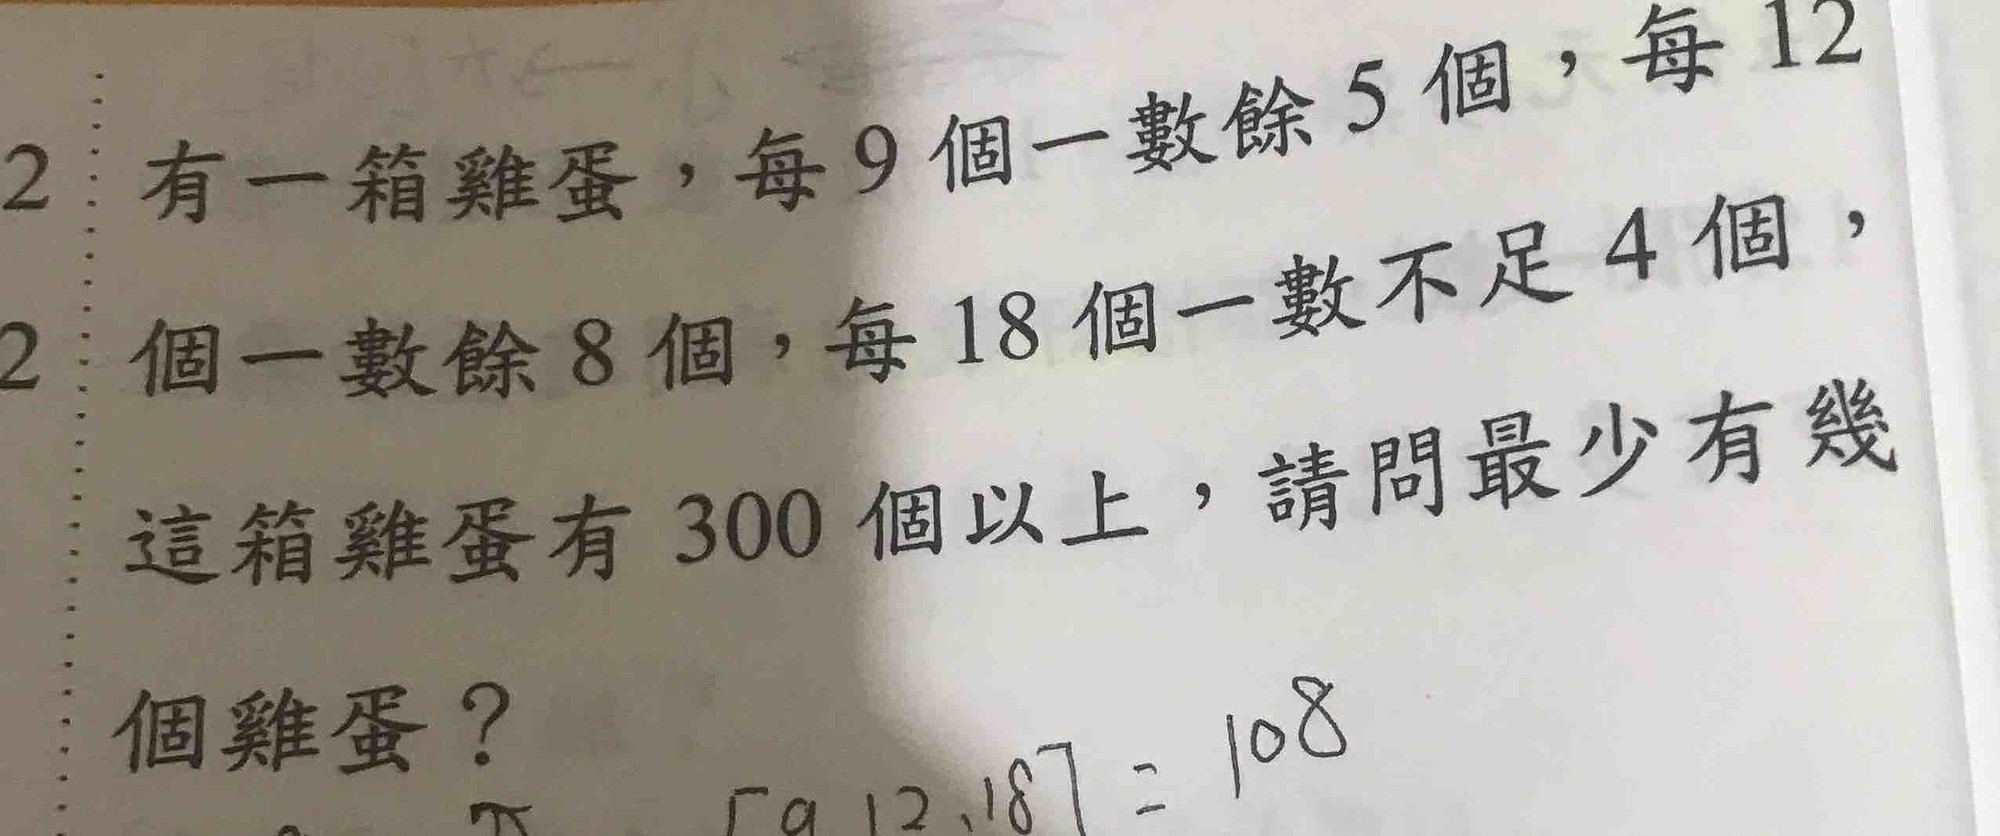 2 有一箱雞蛋，每9個一數餘5個，每12
2 個一數餘8個，每18個一數不足4個，
這箱雞蛋有 300 個以上，請問最少有幾
個雞蛋？
[9,12,18] = 108